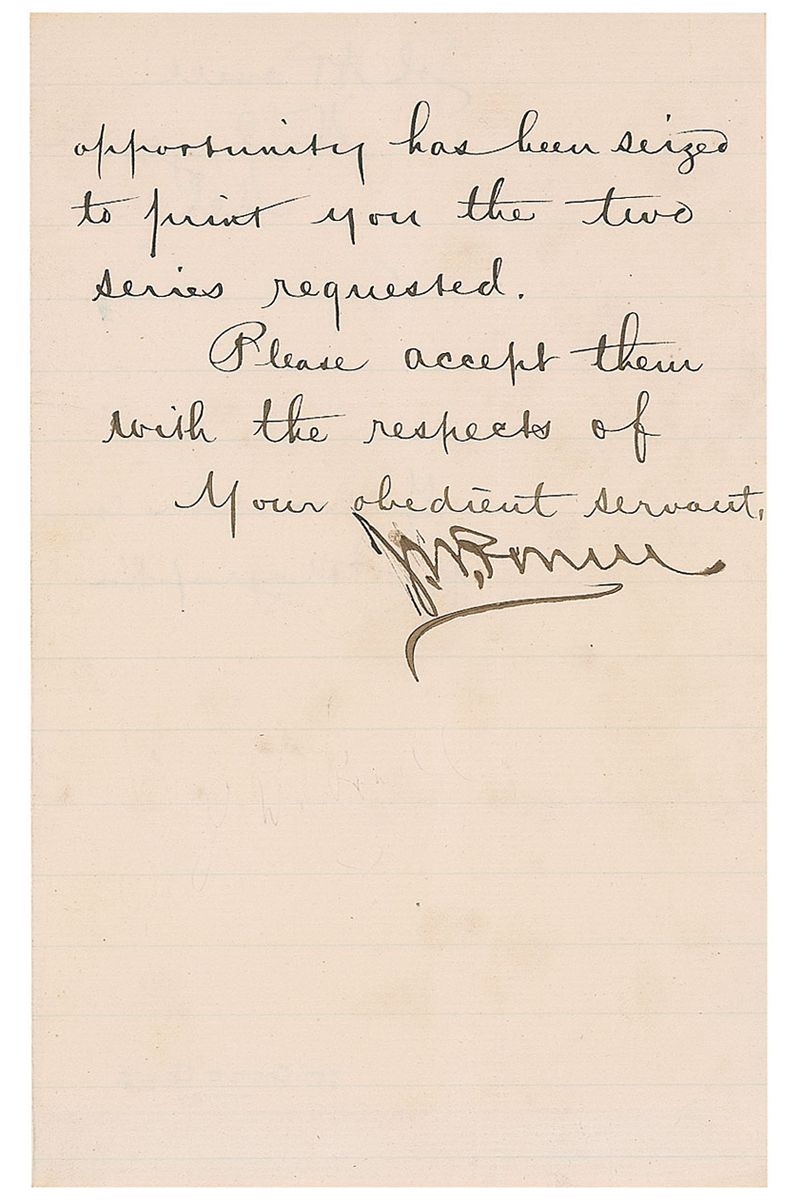 opportunity has been seized
to print you the two
series requested.
Please accept them
with the respects of
Your obedient servant,